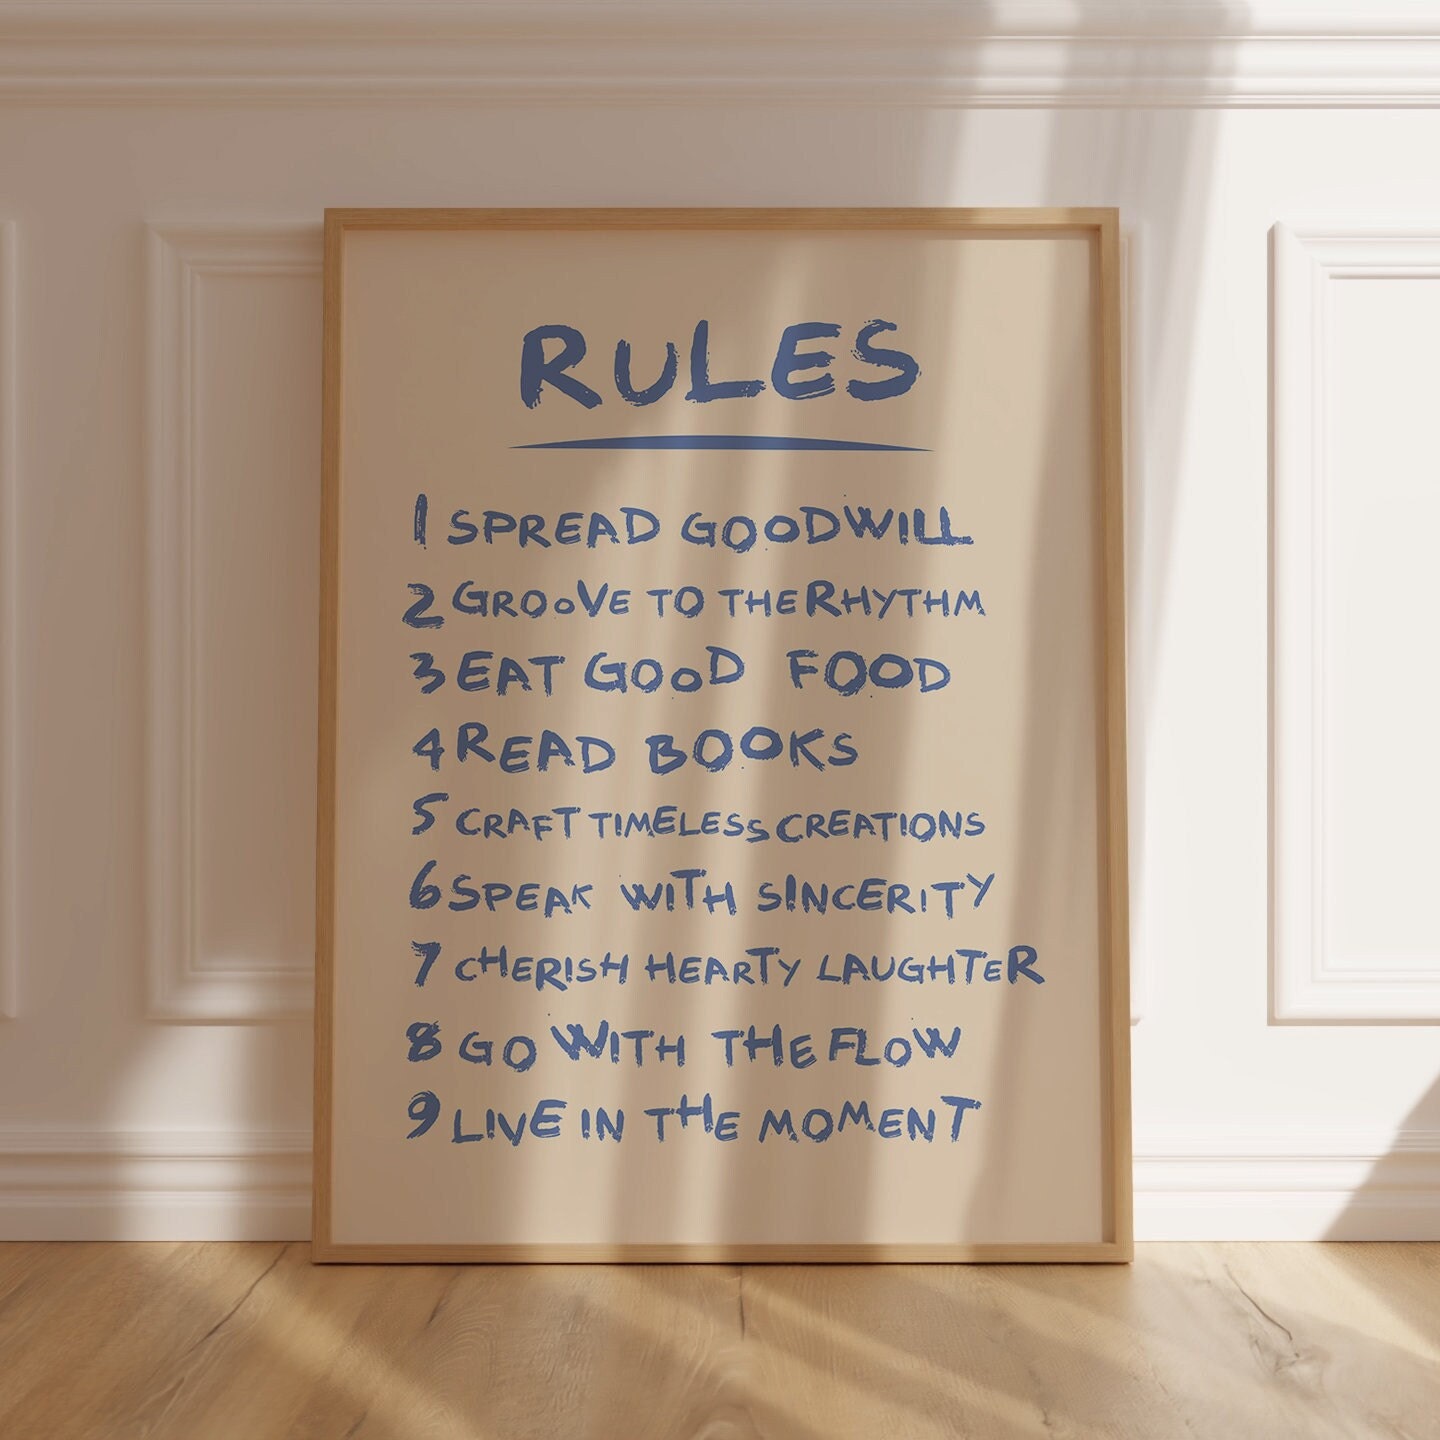 RULES
1 SPREAD GOODWILL
2 GROOVE TO THE RHYTHM
3 EAT GOOD FOOD
4 READ BOOKS
5 CRAFT TIMELESS CREATIONS
6 SPEAK WITH SINCERITY
7 CHERISH HEARTY LAUGHTER
8 GO WITH THE FLOW
9 LIVE IN THE MOMENT